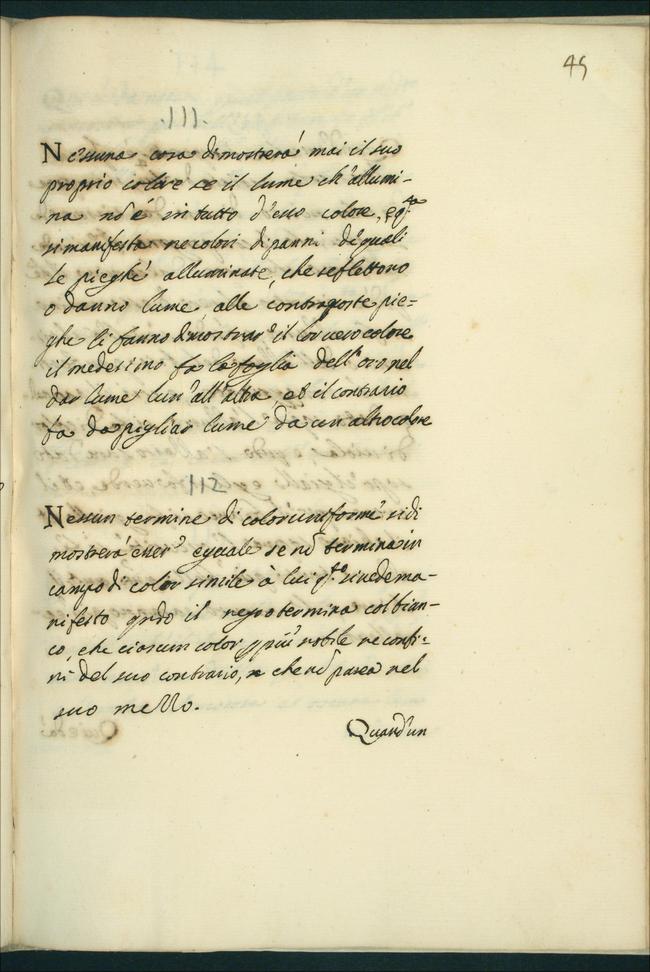 45
.111.
Nessuna cosa dimostrerà mai il suo
proprio colore se il lume ch'allumi-
na nõ é in tutto d'esso colore, e q.to
si manifesta ne colori di panni de quali
le pieghe alluminate, che reflettono
o danno lume alle contraposte pie=
ghe li fanno dimostrar' il lor vero colore
il medesimo fa la foglia dell'oro nel
dar lume lun' all'altra et il contrario
fa da pigliar lume da un altro colore
112
Nessun termine di color uniforme si di
mostrerà esser' eguale se nõ termina in
campo di color simile à lui q.to si vede ma-
nifesto qndo il negro termina col bian-
co, che ciascun color più nobile ne confi-
ni del suo contrario, che nõ parea nel
suo mezzo.
Quand'un